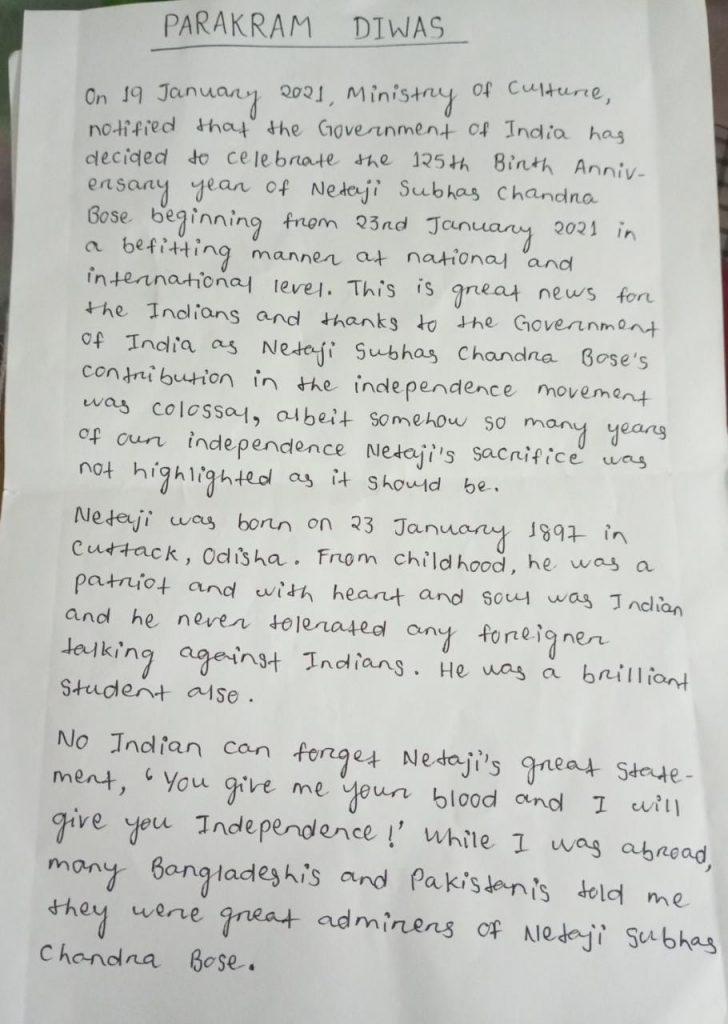 PARAKRAM DIWAS
On 19 January 2021, Ministry of Culture,
notified that the Government of India has
decided to celebrate the 125th Birth Anniv-
ersary year of Netaji Subhas Chandra
Bose beginning from 23rd January 2021 in
a befitting manner at national and
international level. This is great news for
the Indians and thanks to the Government
of India as Netaji Subhas Chandra Bose's
contribution in the independence movement
was colossal, albeit somehow so many years
of our independence Netaji's sacrifice was
not highlighted as it should be.
Netaji was born on 23 January 1897 in
Cuttack, Odisha. From childhood, he was a
patriot and with heart and soul was Indian
and he never tolerated any foreigner
talking against Indians. He was a brilliant
student also.
No Indian can forget Netaji's great state-
ment, ‘You give me your blood and I will
give you Independence!’ While I was abroad,
many Bangladeshis and Pakistanis told me
they were great admirers of Netaji Subhas
Chandra Bose.